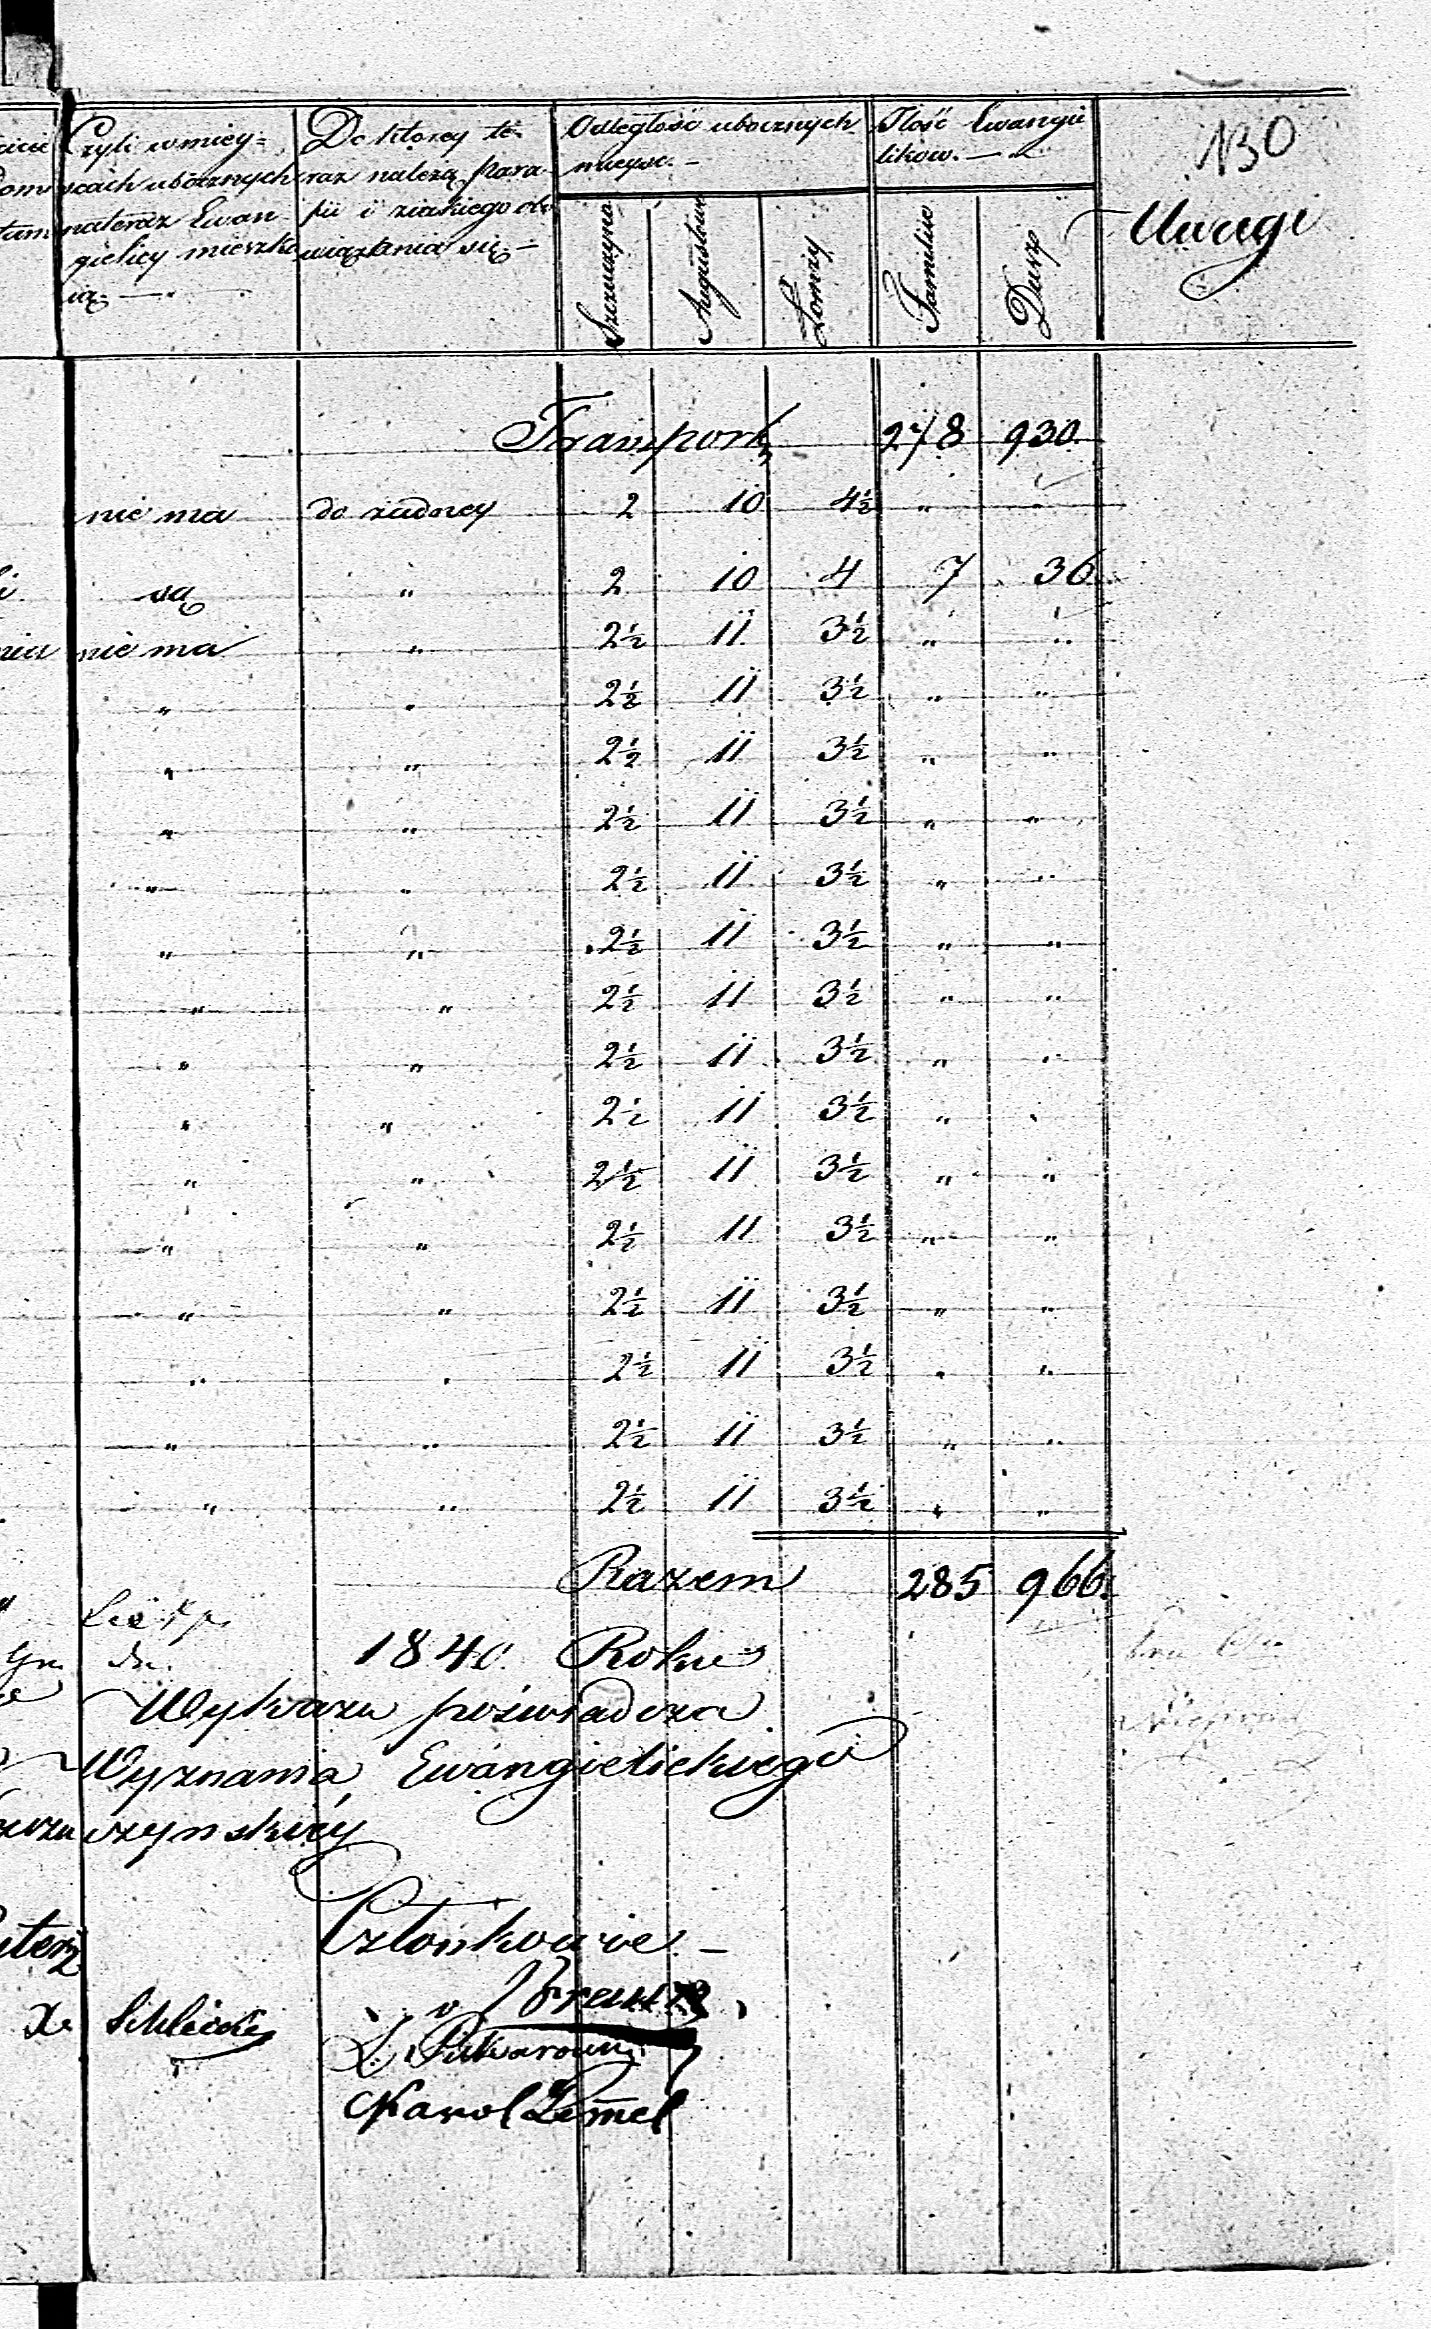 130
Czyli w miey=
scach ubocznych
nateraz Ewan
gielicy mieszka
ią. —
Do którey te
raz należą para
fii i z iakiego obo
wiązania się —
Odległość ubocznych
mieysc. —
Szczuczyna
Augustowa
Łomży
Ilość Ewangie
likow. —
Familiie
Dusz
Uwagi
Transport 278 930.
nie ma do żadney 2 10 4½ " "
są " 2 10 4 7 36
nie ma " 2½ 11 3½ " "
" " 2½ 11 3½ " "
" " 2½ 11 3½ " "
" " 2½ 11 3½ " "
" " 2½ 11 3½ " "
" " 2½ 11 3½ " "
" " 2½ 11 3½ " "
" " 2½ 11 3½ " "
" " 2½ 11 3½ " "
" " 2½ 11 3½ " "
" " 2½ 11 3½ " "
" " 2½ 11 3½ " "
" " 2½ 11 3½ " "
" " 2½ 11 3½ " "
" " 2½ 11 3½ " "
Razem 285 966.
1840. Roku
Wykazu poświadcza
Wyznania Ewangielickiego
czyńskiéy
Członkowie —
Karol Lemel